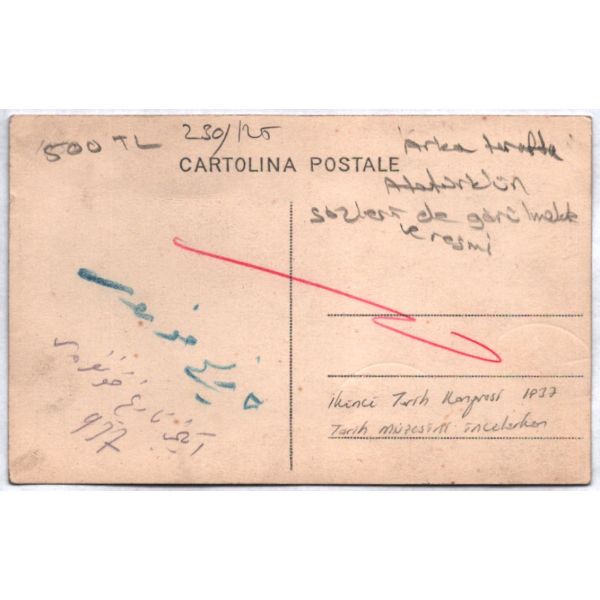 500 TL
230/125
CARTOLINA POSTALE
Arka tarafta
Atatürkün
sözleri de görülmekte
ve resmi
ikinci Tarih Kongresi 1937
Tarih müzesini incelerken
ایکنجی تاریخ قونغره سی
937